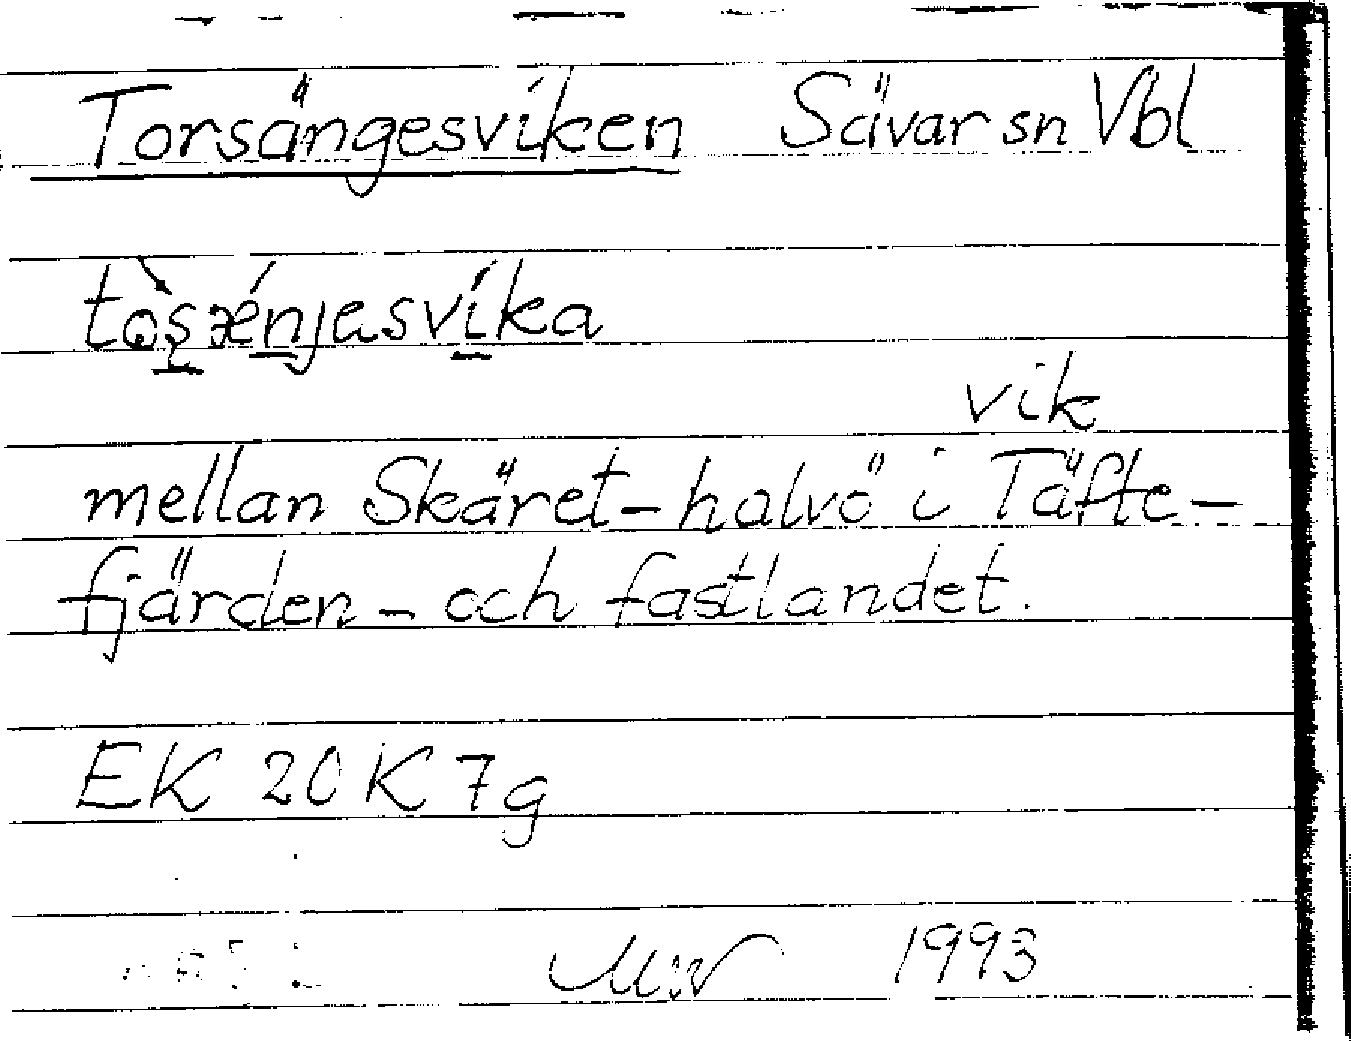 Torsängesviken Sävar sn Vbl
tòsænjesvíka
vik
mellan Skäret-halvö i Täfte-
fjärden - och fastlandet.
EK 20K 7g
1993